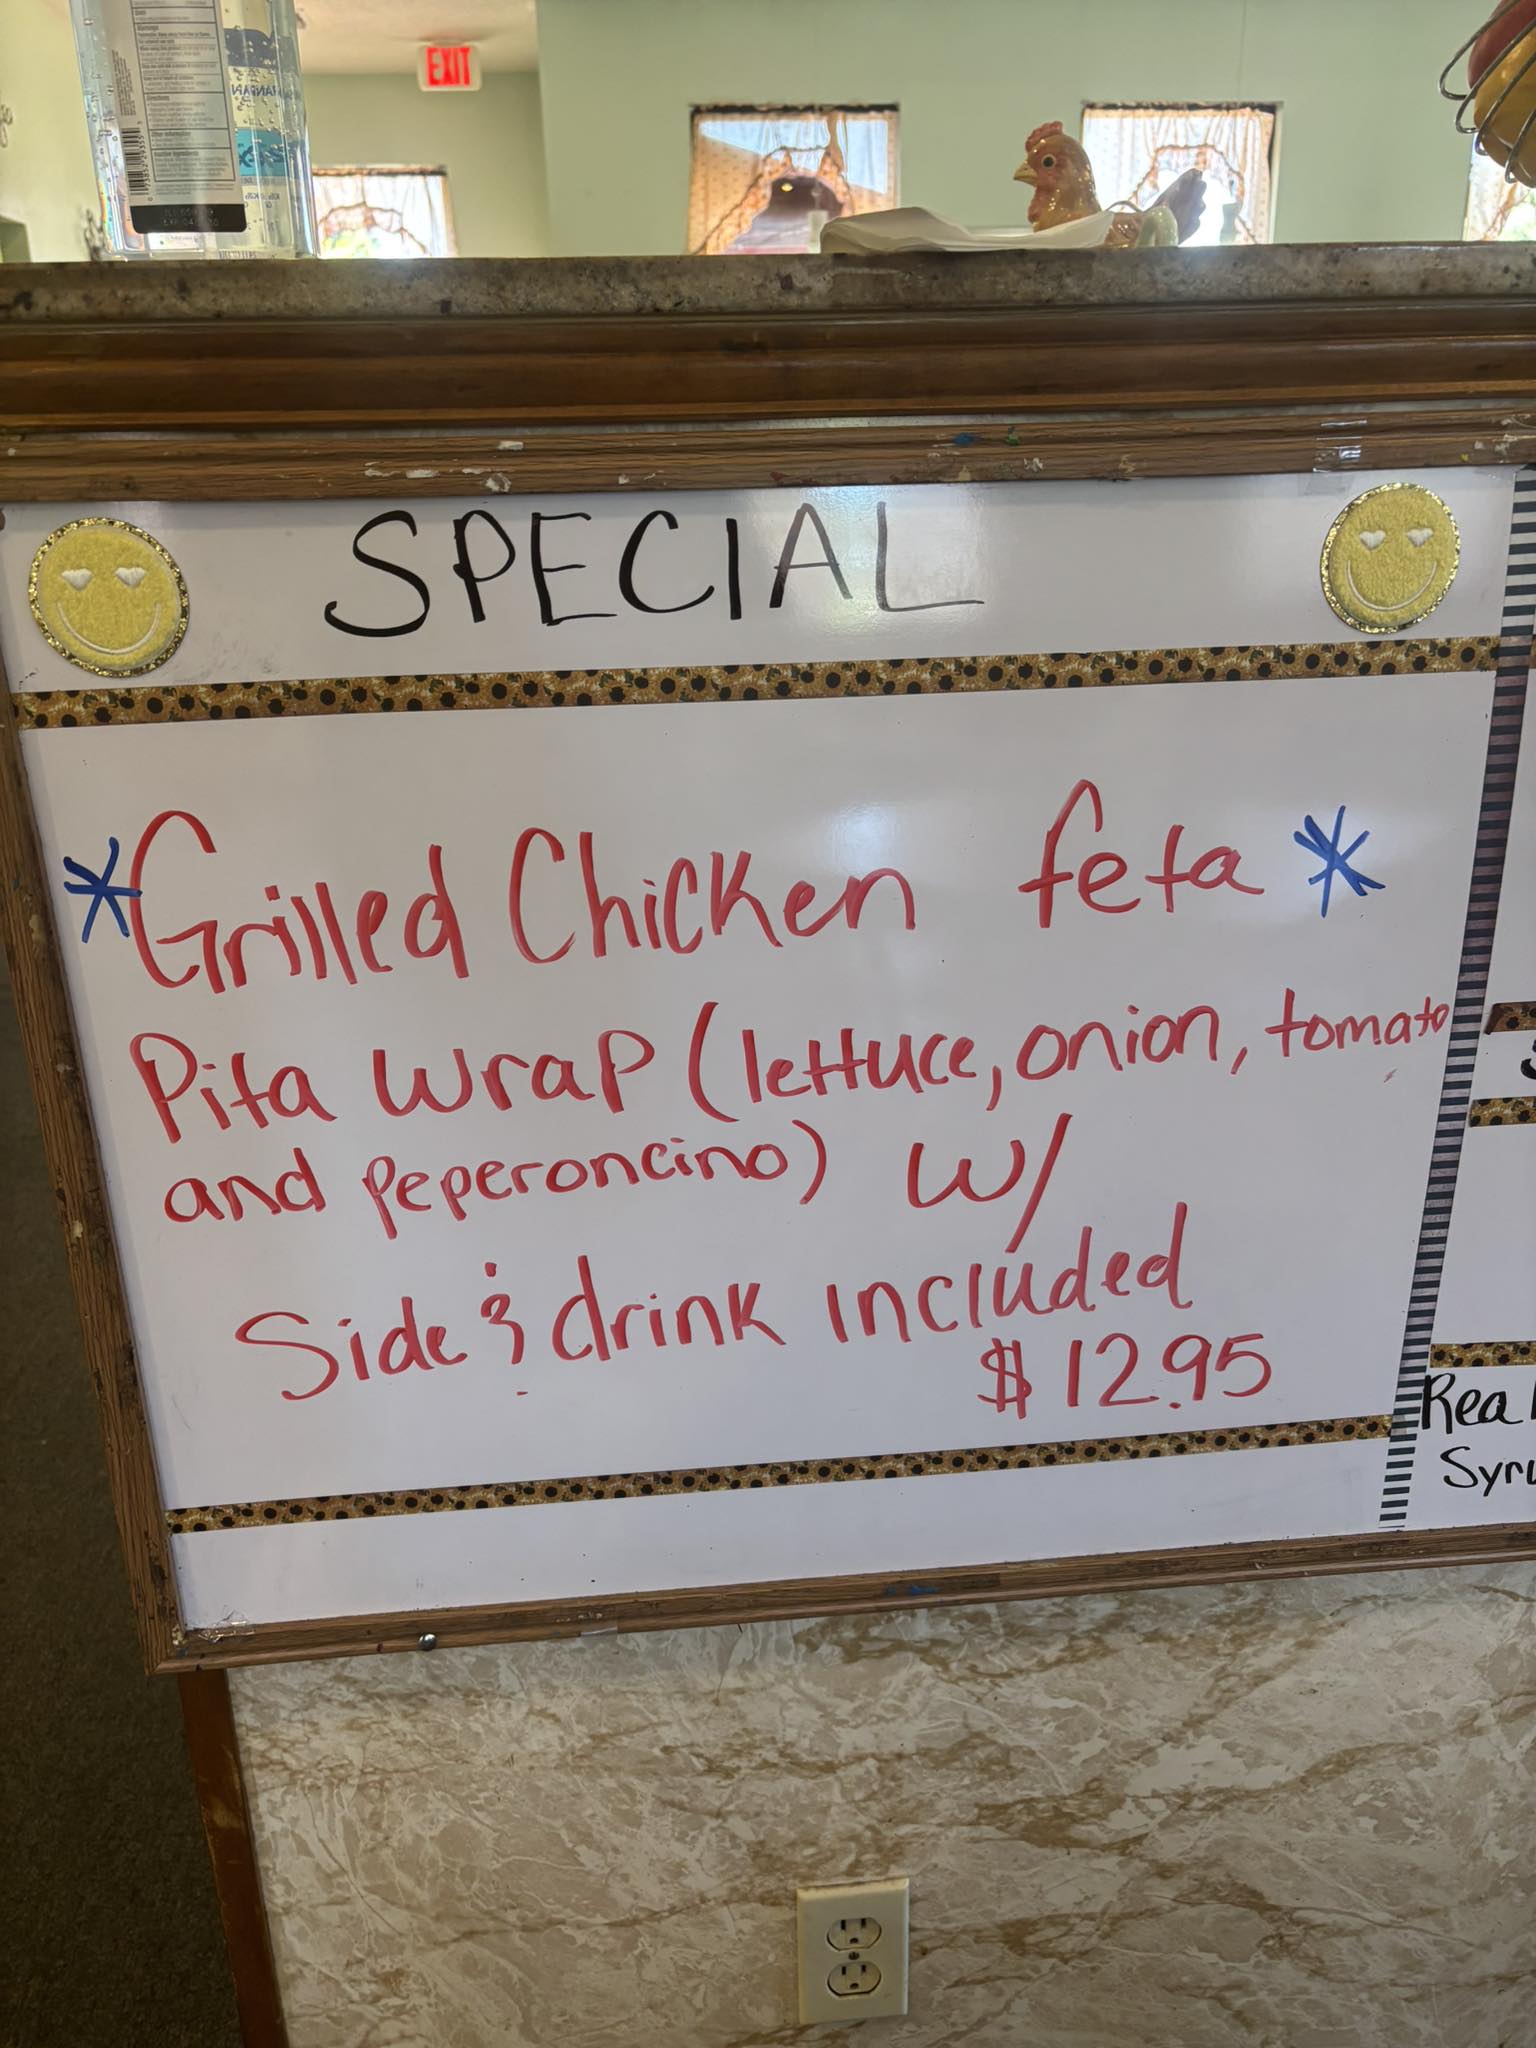 EXIT
Other information
Directions
SPECIAL
*Grilled Chicken feta*
Pita wrap (lettuce, onion, tomato
and peperoncino) w/
Side & drink included
$12.95
Real
Syru